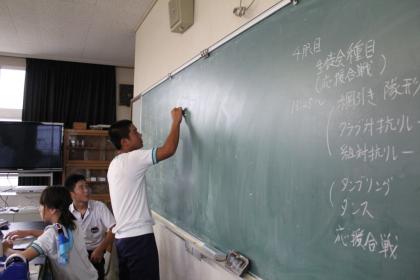 4限目
生徒会種目
(応援合戦)
綱引き 隊形
クラブ対抗リレー
組対抗リレー
タンブリング
ダンス
応援合戦